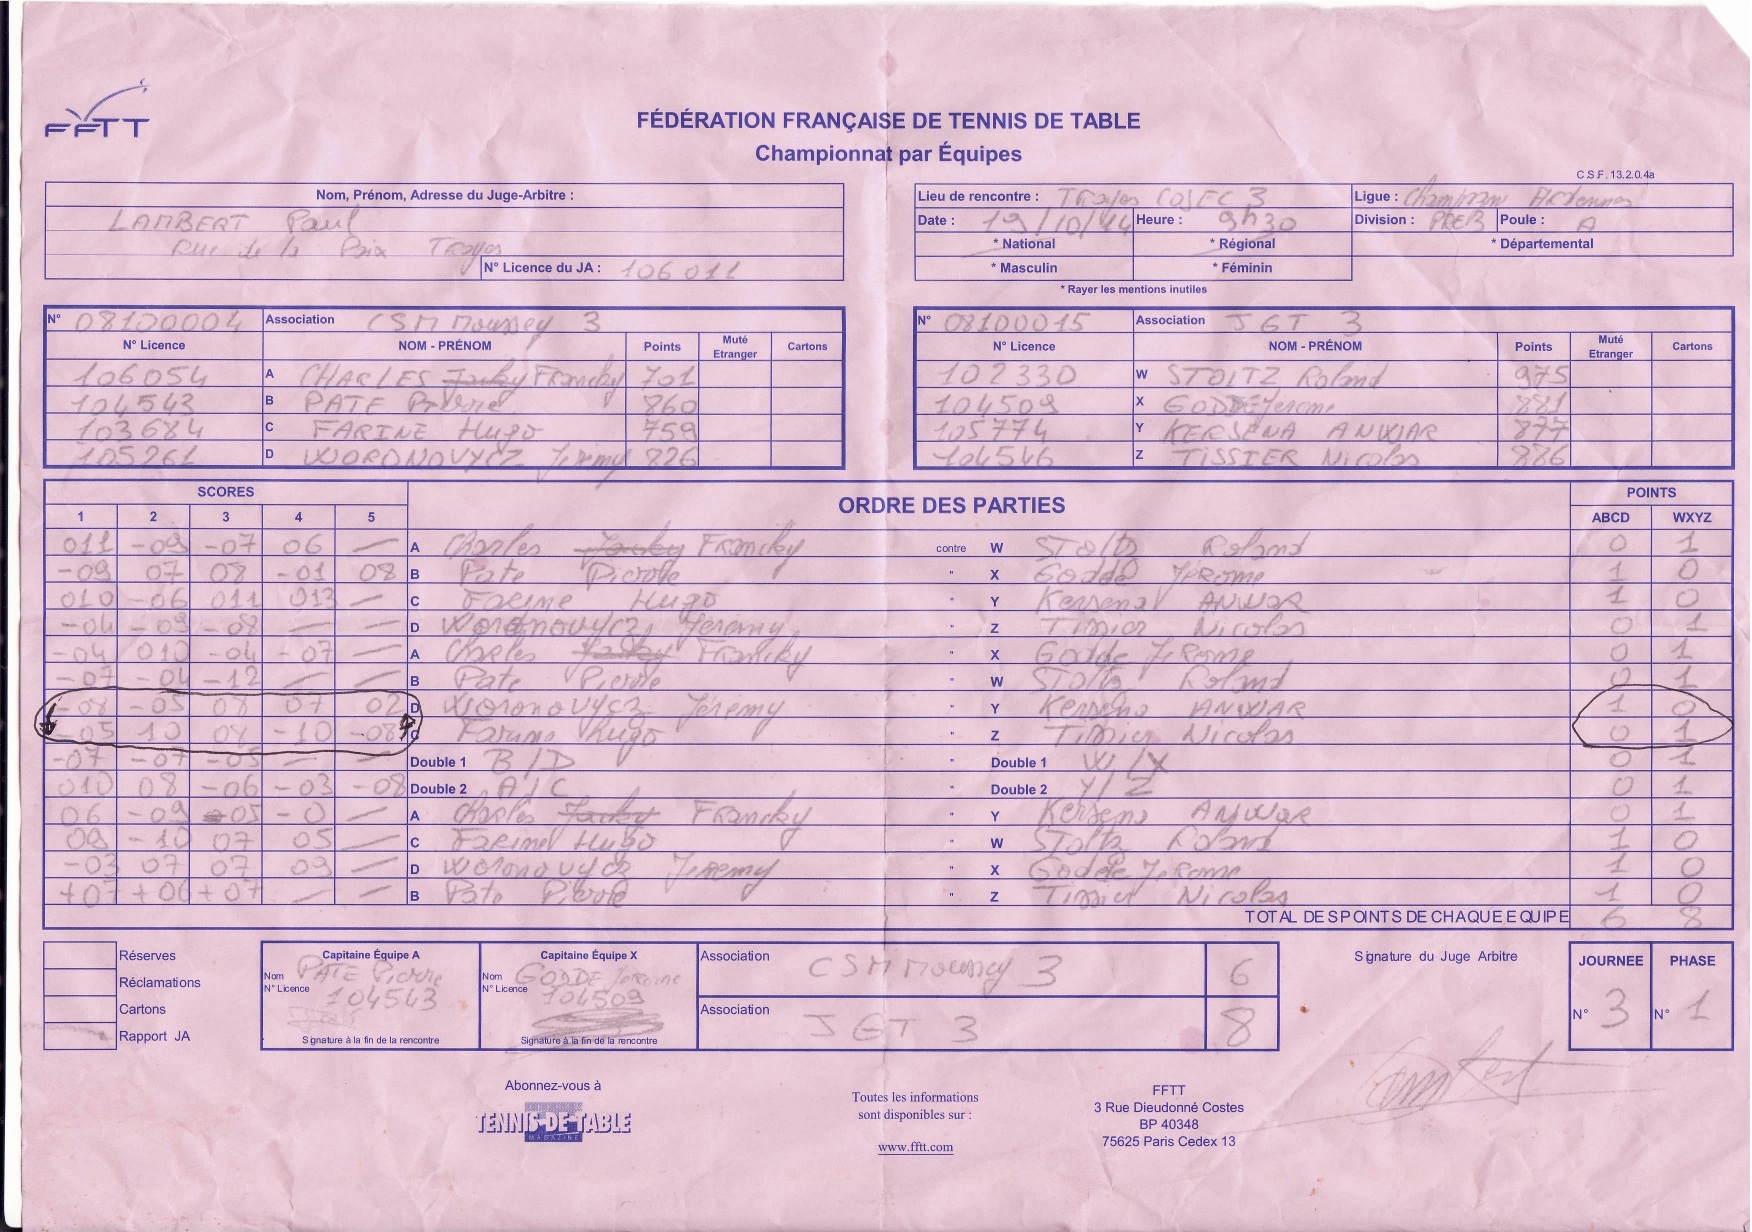 FFTT
FÉDÉRATION FRANÇAISE DE TENNIS DE TABLE
Championnat par Équipes
C.S.F. 13.2.0.4a
Nom, Prénom, Adresse du Juge-Arbitre :
LAMBERT Paul
Rue de la Paix Troyes
N° Licence du JA : 106 011
Lieu de rencontre : Troyes COSEC 3 Ligue : Champagne Ardennes
Date : 19/10/14 Heure : 9h30 Division : PREB Poule : A
* National * Régional * Départemental
* Masculin * Féminin
* Rayer les mentions inutiles
N° 08100004 Association CSM Moussey 3
N° Licence NOM - PRÉNOM Points Muté Etranger Cartons
106054 A CHARLES Jacky Francky 701
104543 B PATE Pierre 860
103684 C FARINE Hugo 759
105261 D WORONOVYCZ Jeremy 826
N° 08100015 Association JGT 3
N° Licence NOM - PRÉNOM Points Muté Etranger Cartons
102330 W STOLTZ Roland 975
104509 X GODDE Jerome 881
105774 Y KERSENA ANWAR 877
104546 Z TISSIER Nicolas 886
SCORES ORDRE DES PARTIES POINTS
1 2 3 4 5 ABCD WXYZ
011 -09 -07 06 — A Charles Jacky Francky contre W Stoltz Roland 0 1
-09 07 08 -01 08 B Pate Pierre " X Godde Jérome 1 0
010 -06 011 013 — C Farine Hugo " Y Kersena ANWAR 1 0
-04 -09 -08 — — D Woronovycz Jeremy " Z Tissier Nicolas 0 1
-04 010 -04 -07 — A Charles Jacky Francky " X Godde Jerome 0 1
-07 -04 -12 — — B Pate Pierre " W Stoltz Roland 0 1
-08 -05 08 07 02 D Woronovycz Jéremy " Y Kersena ANWAR 1 0
-05 10 08 -10 -08 C Farine Hugo " Z Tissier Nicolas 0 1
-07 -07 -05 — — Double 1 B/D " Double 1 W/X 0 1
010 08 -06 -03 -08 Double 2 A/C " Double 2 Y/Z 0 1
06 -09 -05 -0 — A Charles Jacky Francky " Y Kersena ANWAR 0 1
09 -10 07 05 — C Farine Hugo " W Stoltz Roland 1 0
-03 07 07 09 — D Woronovycz Jeremy " X Godde Jerome 1 0
+07 +06 +07 — — B Pate Pierre " Z Tissier Nicolas 1 0
TOTAL DES POINTS DE CHAQUE EQUIPE 6 8
Réserves
Réclamations
Cartons
Rapport JA
Capitaine Équipe A
Nom PATE Pierre
N° Licence 104543
Signature à la fin de la rencontre
Capitaine Équipe X
Nom GODDE Jerome
N° Licence 104509
Signature à la fin de la rencontre
Association CSM Moussey 3 6
Association JGT 3 8
Signature du Juge Arbitre
JOURNEE PHASE
N° 3 N° 1
Abonnez-vous à
TENNIS DE TABLE
MAGAZINE
Toutes les informations
sont disponibles sur :
www.fftt.com
FFTT
3 Rue Dieudonné Costes
BP 40348
75625 Paris Cedex 13